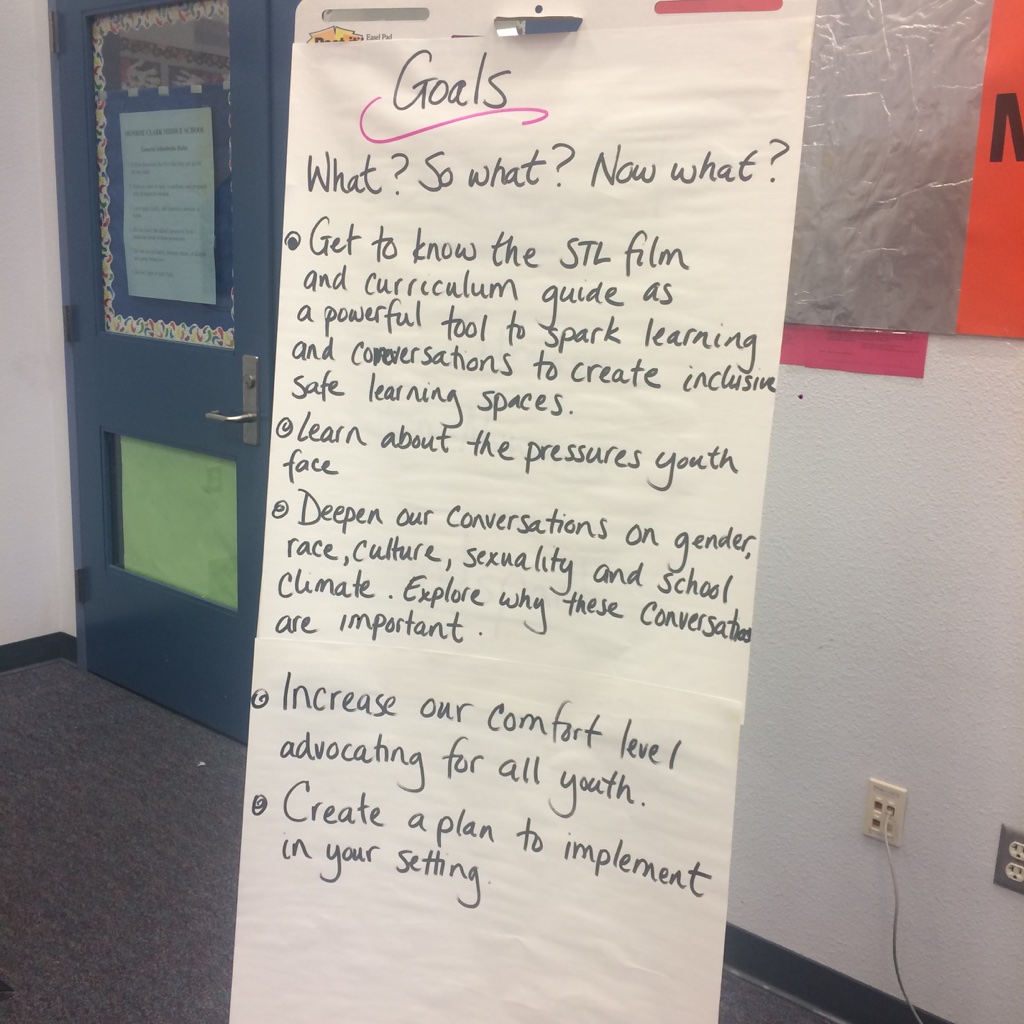 Post-it Easel Pad
Goals
What? So what? Now what?
Get to know the STL film
and curriculum guide as
a powerful tool to spark learning
and conversations to create inclusive
safe learning spaces.
Learn about the pressures youth
face
Deepen our conversations on gender,
race, culture, sexuality and school
climate. Explore why these conversations
are important.
Increase our comfort level
advocating for all youth.
Create a plan to implement
in your setting.
CLARK MIDDLE SCHOOL